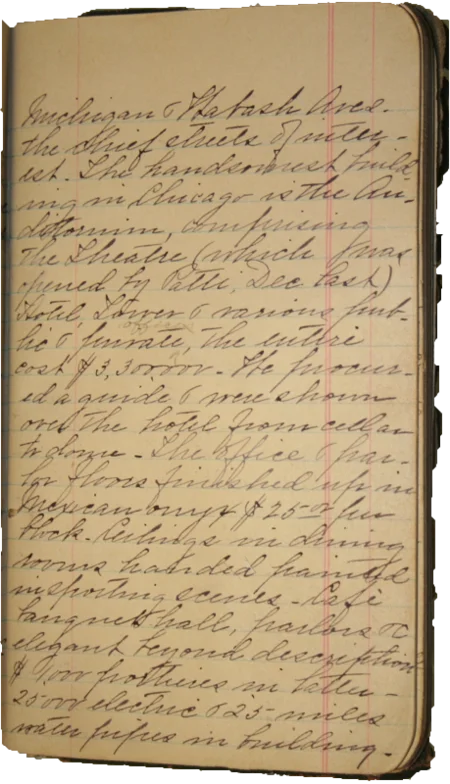 Michigan & Wabash Aves.
the chief streets of inter-
est. The handsomest build
ing in Chicago is the Au-
ditorium, comprising
the Theatre (which was
opened by Patti, Dec last)
Hotel, Tower & various pub-
lic & private, the entire
cost $3,300000. We procur-
ed a guide & were shown
over the hotel from cellar
to dome - The office & par-
lor floors finished up in
Mexican onyx $25.00 per
block. Ceilings in dining
rooms handed painted
in sporting scenes - Café
banquet hall, parlors &c
elegant beyond description
$ portieres in latter -
25000 electric & 25 miles
water pipes in building -